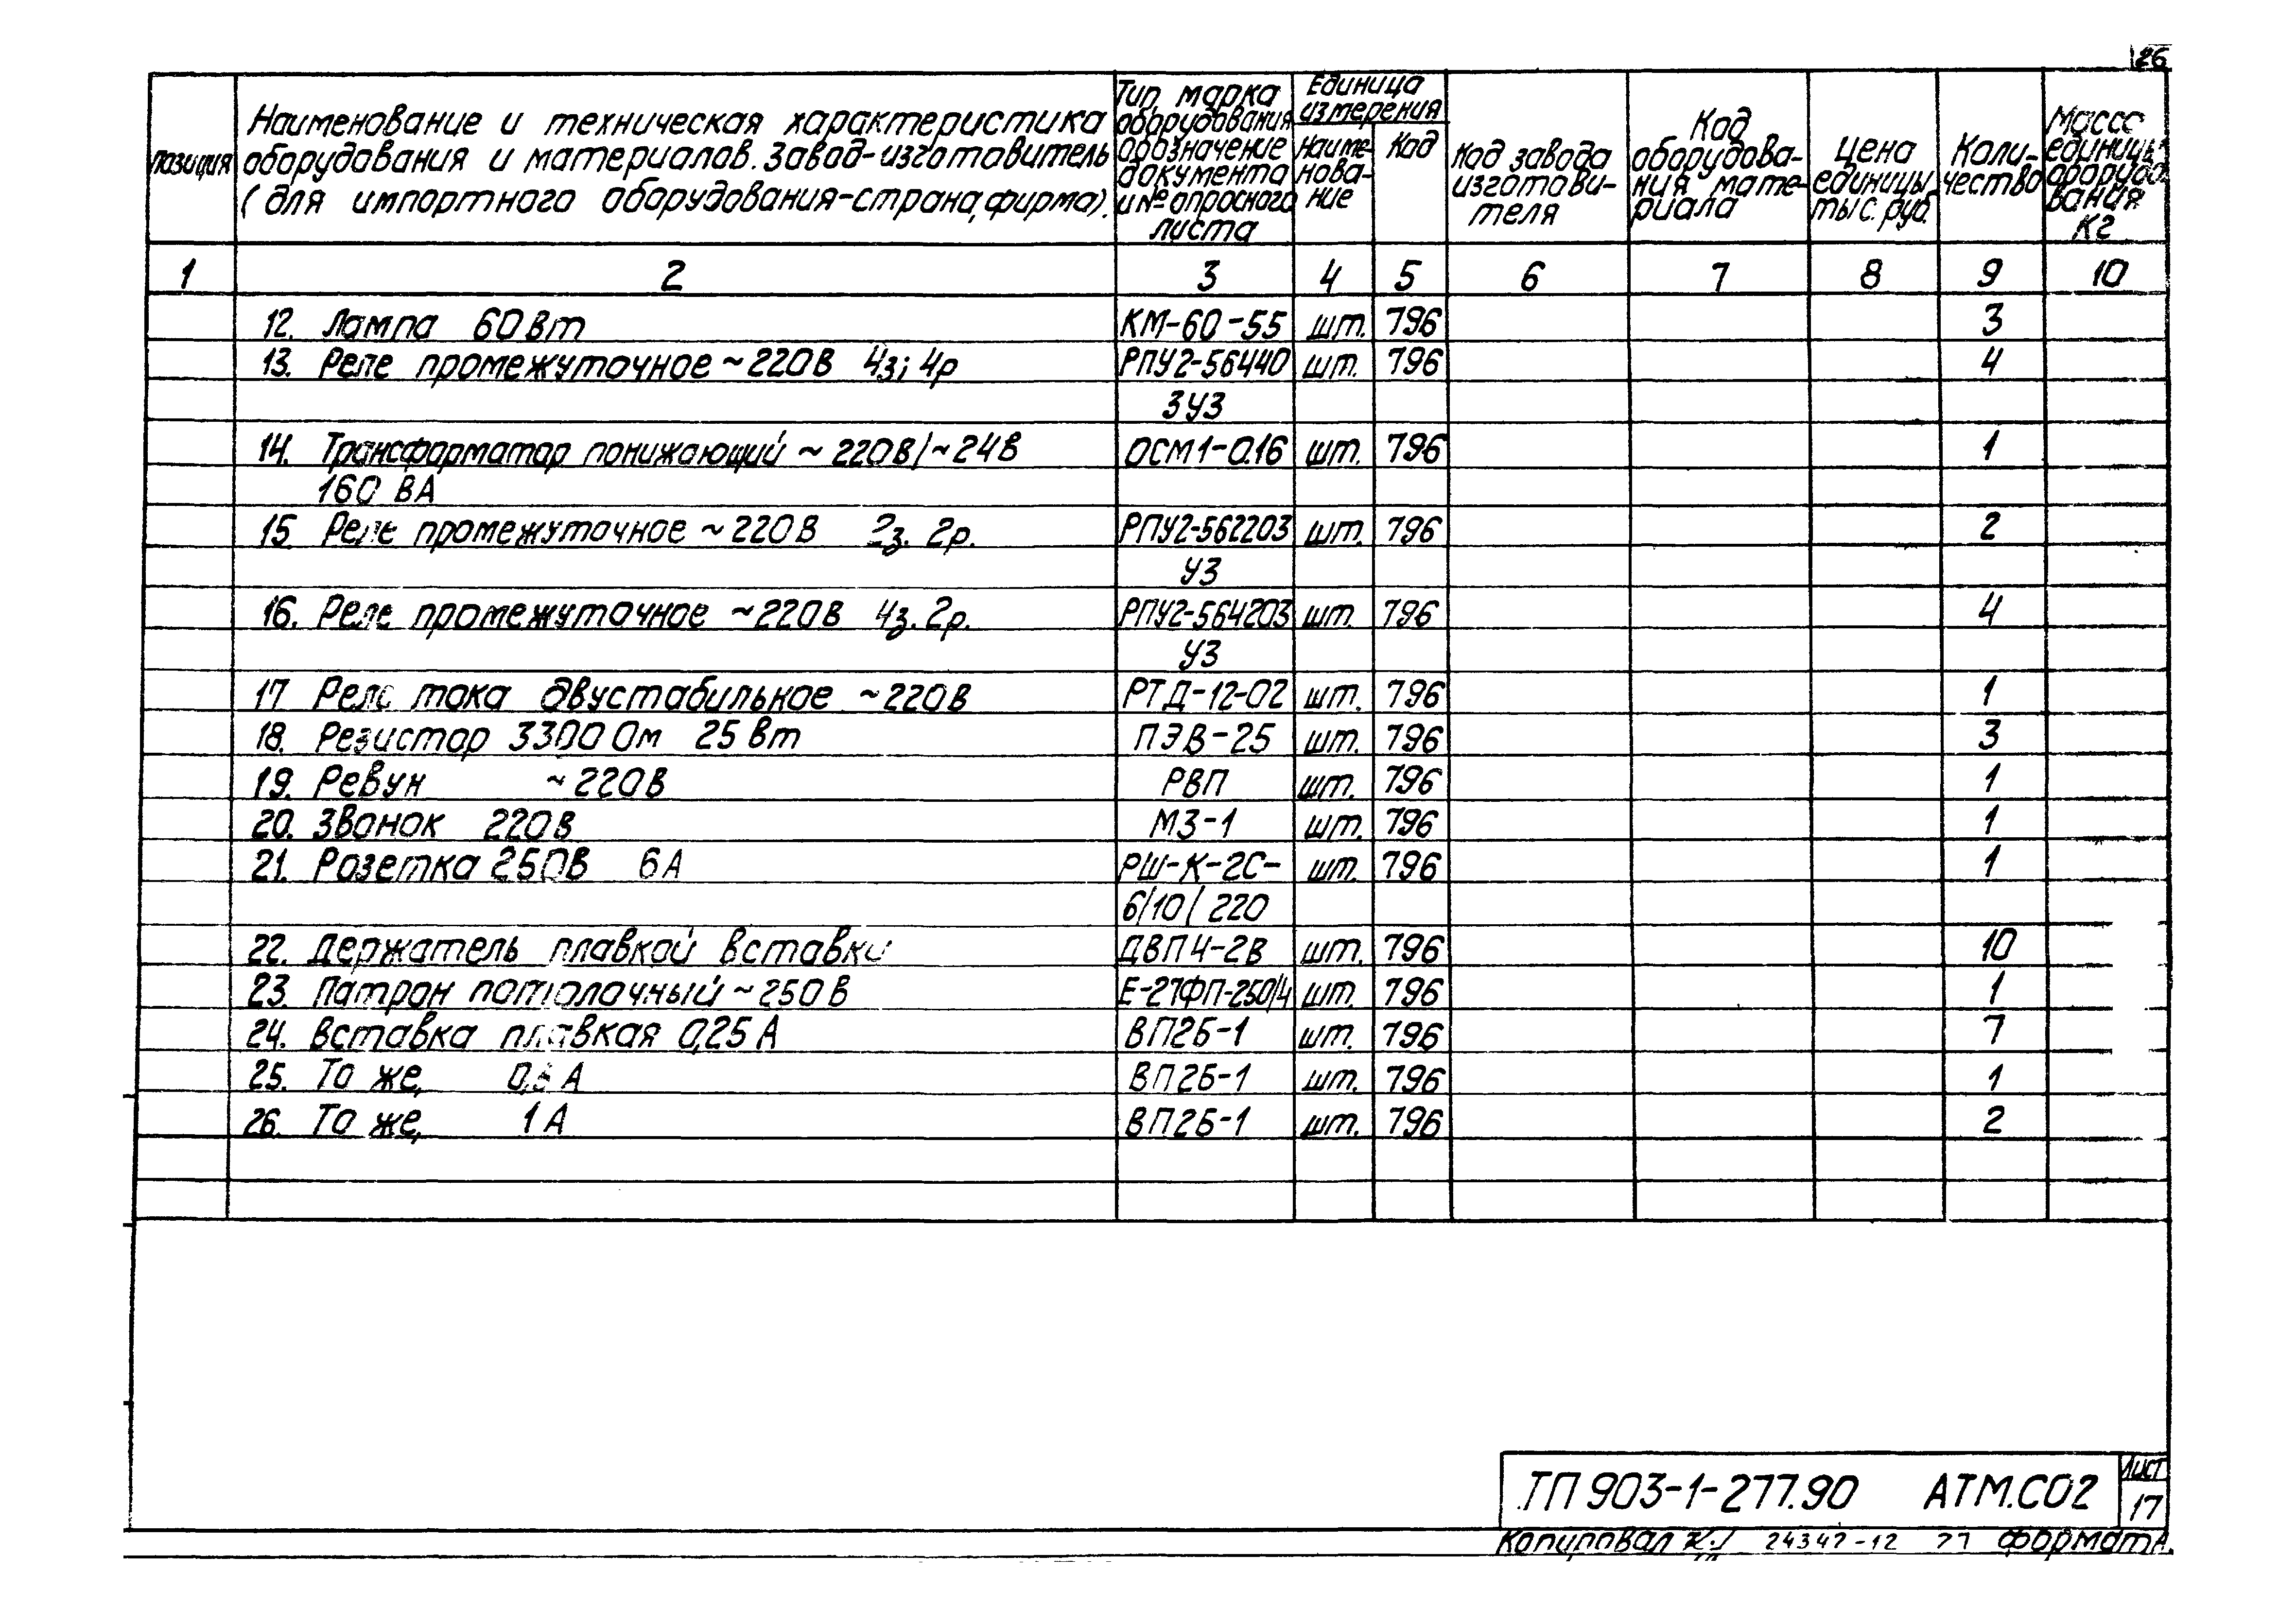 26
Позиция
Наименование и техническая характеристика
оборудования и материалов. Завод-изготовитель
(для импортного оборудования-страна, фирма).
Тип, марка
оборудования
обозначение
документа
и № опросного
листа
Единица
измерения
Наиме-
нова-
ние
Код
Код завода
изготови-
теля
Код
оборудова-
ния мате-
риала
Цена
единицы
тыс. руб.
Коли-
чество
Масса
единицы
оборудо-
вания
кг
1 2 3 4 5 6 7 8 9 10
12. Лампа 60 Вт КМ-60-55 шт. 796 3
13. Реле промежуточное ~220В 4з; 4р РПУ2-56440 шт. 796 4
3У3
14. Трансформатор понижающий ~220В/~24В ОСМ1-0.16 шт. 796 1
160 ВА
15. Реле промежуточное ~220В 2з. 2р. РПУ2-562203 шт. 796 2
У3
16. Реле промежуточное ~220В 4з. 2р. РПУ2-564203 шт. 796 4
У3
17 Реле тока двустабильное ~220В РТД-12-02 шт. 796 1
18. Резистор 3300 Ом 25 Вт ПЭВ-25 шт. 796 3
19. Ревун ~220В РВП шт. 796 1
20. Звонок 220В МЗ-1 шт. 796 1
21. Розетка 250В 6А РШ-К-2С- шт. 796 1
6/10/220
22. Держатель плавкой вставки ДВП4-2В шт. 796 10
23. Патрон потолочный ~250В Е-27ФП-250/4 шт. 796 1
24. Вставка плавкая 0,25 А ВП2Б-1 шт. 796 7
25. То же, А ВП2Б-1 шт. 796 1
26. То же, 1 А ВП2Б-1 шт. 796 2
ТП 903-1-277.90 АТМ.СО2
Лист
17
Копировал 24347-12 27 Формат А